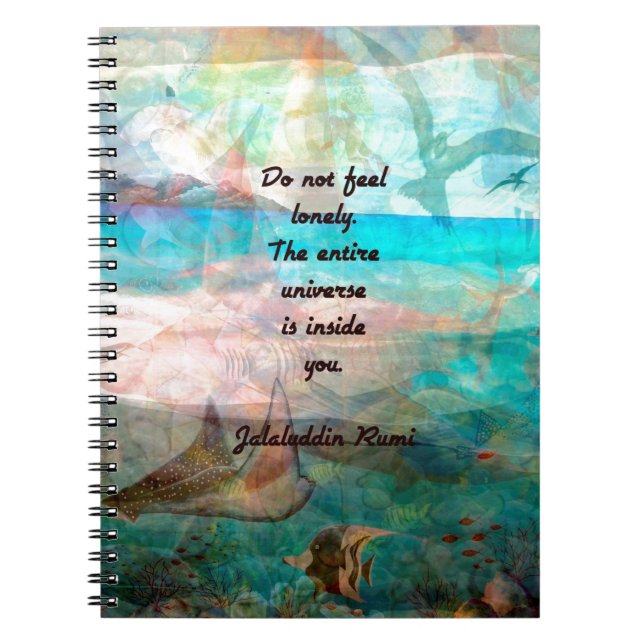 Do not feel
lonely.
The entire
universe
is inside
you.
Jalaluddin Rumi